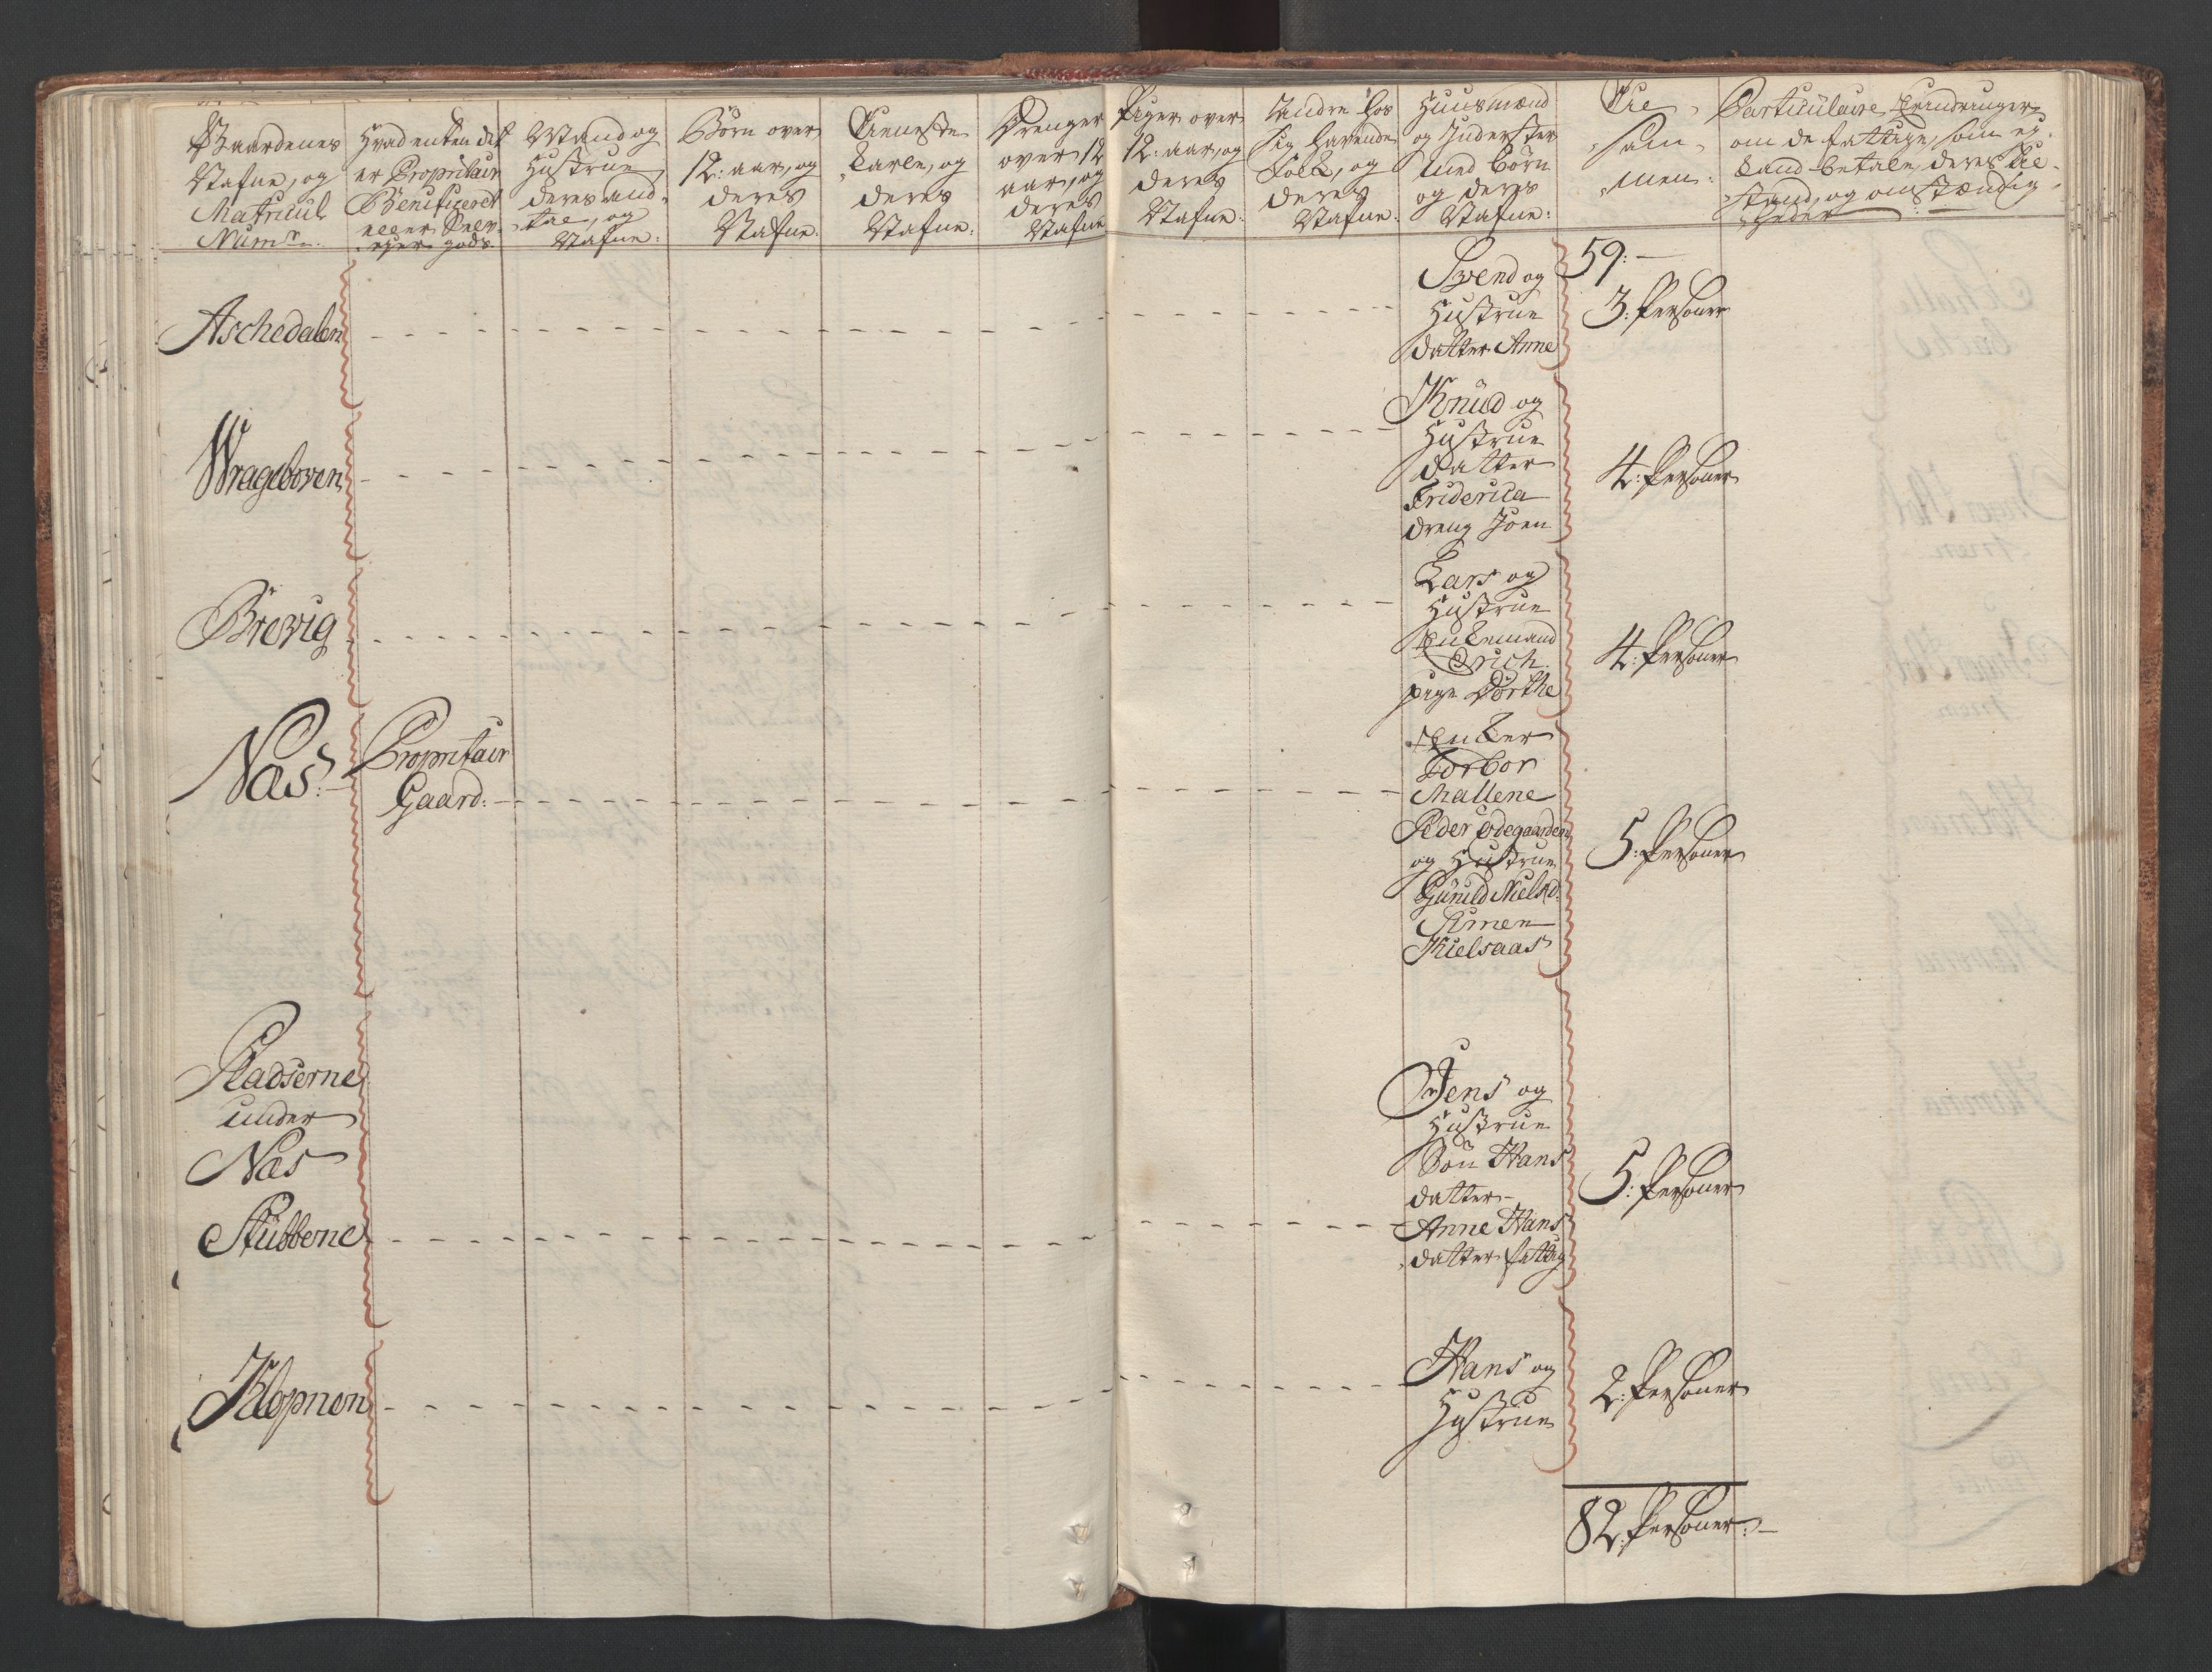 Gaardenes
Nafne, og
Matricul
Num:
Hvad enten det
er Proprietair
Beneficeret
eller Selv-
ejer gods
Mand og
Hustrue
deres and-
tal, og
Nafne:
Börn over
12: aar, og
deres
Nafne.
Tieneste
Karle, og
deres
Nafne:
Drenger
over 12
aar, og
deres
Nafne
Piger over
12: aar, og
deres
Nafne:
Andre hos
sig havende
Folk, og
deres
Nafne:
Huusmænd
og Inderster
med börn
og deres
Nafne:
Til
sam
men:
Particulaire Erindringer
om de fattige, som ej
kand betale, deres til-
stand, og omstændig
heder
59:
Aschedalen
Svend og
Hustrue
datter Anne
3: Personer
Wrageboven
Knud og
Hustrue
datter
Friderica
dreng Joen
4: Personer
Brevig
Lars og
Hustrue
Enkemand
Erich
pige Dorthe
4: Personer
Næs:
Proprietair
Gaard:
Enker
Torbor
Mallene
Peder Ödegaarden
og Hustrue
Gunild Nielsd:
Simen
Kielsaas
5: Personer
Pladserne
under
Næs
Stubberne
Jens og
Hustrue
Sön Hans
datter
Anne Hans
datter fattig
5: Personer
Klopnen
Hans og
Hustrue
2: Personer
82: Personer: